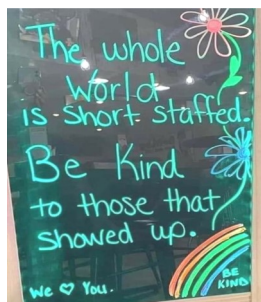 The whole
World
is short staffed.
Be Kind
to those that
showed up.
We ♡ You.
BE
KIND